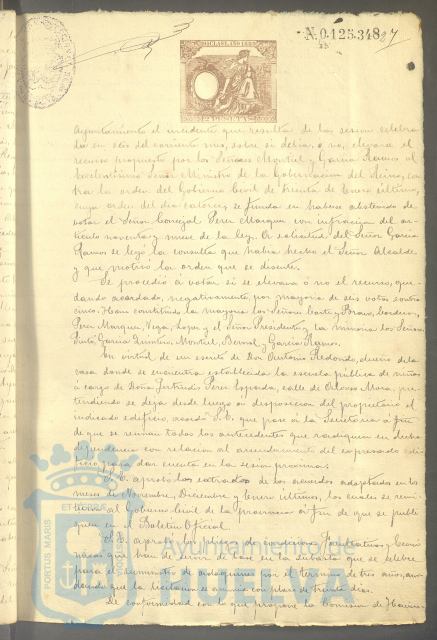 N. 0.125.348
27
Ayuntamiento el incidente que resulta de la sesion celebra-
da en seis del corriente mes, sobre si debia, o no, elevarse el
recurso propuesto por los Señores Montiel y Garcia Ramos al
Excelentisimo Señor Ministro de la Gobernacion del Reino, con-
tra la orden del Gobierno Civil de treinta de Enero último,
cuya orden del dia catorce, se funda en haberse abstenido de
votar el Señor Concejal Perez Marquez con infraccion del ar-
tículo noventa y nueve de la ley. A solicitud del Señor Garcia
Ramos se leyó la consulta que habia hecho el Señor Alcalde
y que motivó la orden que se discute.
Se procedió á votar si se elevara ó no el recurso, que-
dando acordado, negativamente, por mayoria de seis votos contra
cinco. Han constituido la mayoria los Señores Bravo,
Perez Marquez, Vega, Lopez y el Señor Presidente y la minoria los Señores
Garcia Montiel, Bernal, y Garcia Ramos.
En virtud de un escrito de Don Antonio Redondo, dueño de la
casa donde se encuentra establecida la escuela pública de niños
á cargo de Doña Gertrudis Perez calle de Alonso Mora, pre-
tendiendo se deje desde luego a disposicion del propietario el
indicado edificio, acordó S.E. que pase á la Secretaría á fin
de que se reunan todos los antecedentes que radiquen en dicha
dependencia con relacion al arrendamiento del expresado edi-
ficio y dar cuenta en la sesion proxima.
S.E. aprobó los extractos de los acuerdos adoptados en los
meses de Noviembre, Diciembre y Enero últimos, los cuales se remi-
al Gobierno Civil de la provincia á fin de que se publi-
quen en el Boletin Oficial.
S.E. aprobó los pliegos de condiciones facultativas y econó-
micas que han de servir de base en la subasta que se celebre
para el suministro de adoquines por el termino de tres años, acor-
dando que la licitacion se anuncie con plazo de treinta dias.
De conformidad con lo que propone la Comision de Hacien-
PORTUS MARIS
Ayuntamiento de
HUELVA